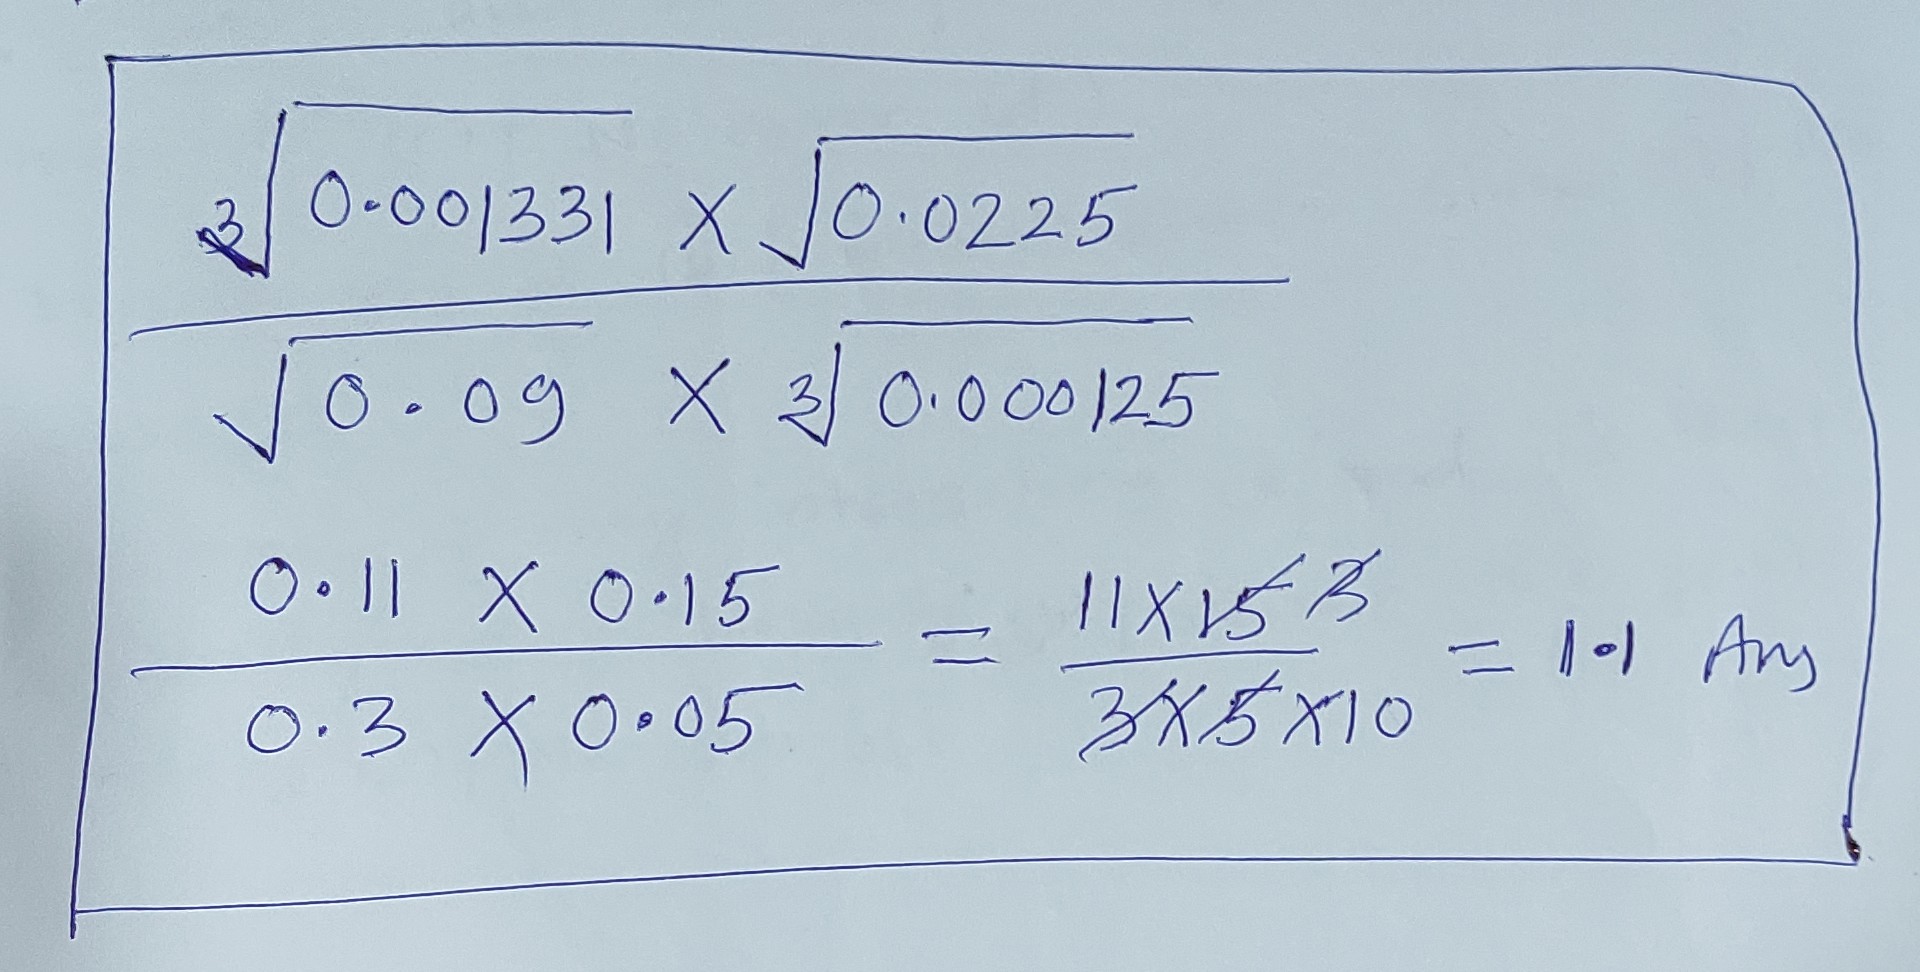 ∛0.001331 × √0.0225
√0.09 × ∛0.000125
0.11 × 0.15 / 0.3 × 0.05 = 11×15 3 / 3×5×10 = 1.1 Ans